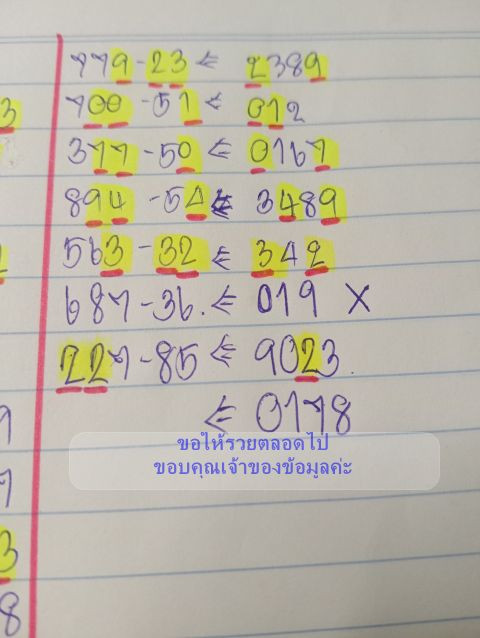 779-23 ⇐ 2389
3
700-51 ⇐ 012
377-50 ⇐ 0167
894-54 ⇐ 3489
563-32 ⇐ 342
687-36. ⇐ 019 X
227-85 ⇐ 9023.
⇐ 0178
ขอให้รวยตลอดไป
ขอบคุณเจ้าของข้อมูลค่ะ
3
8